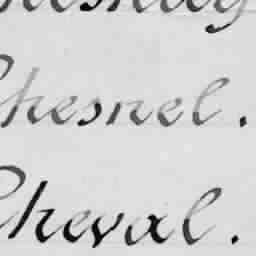 Chesnel.
Cheval.